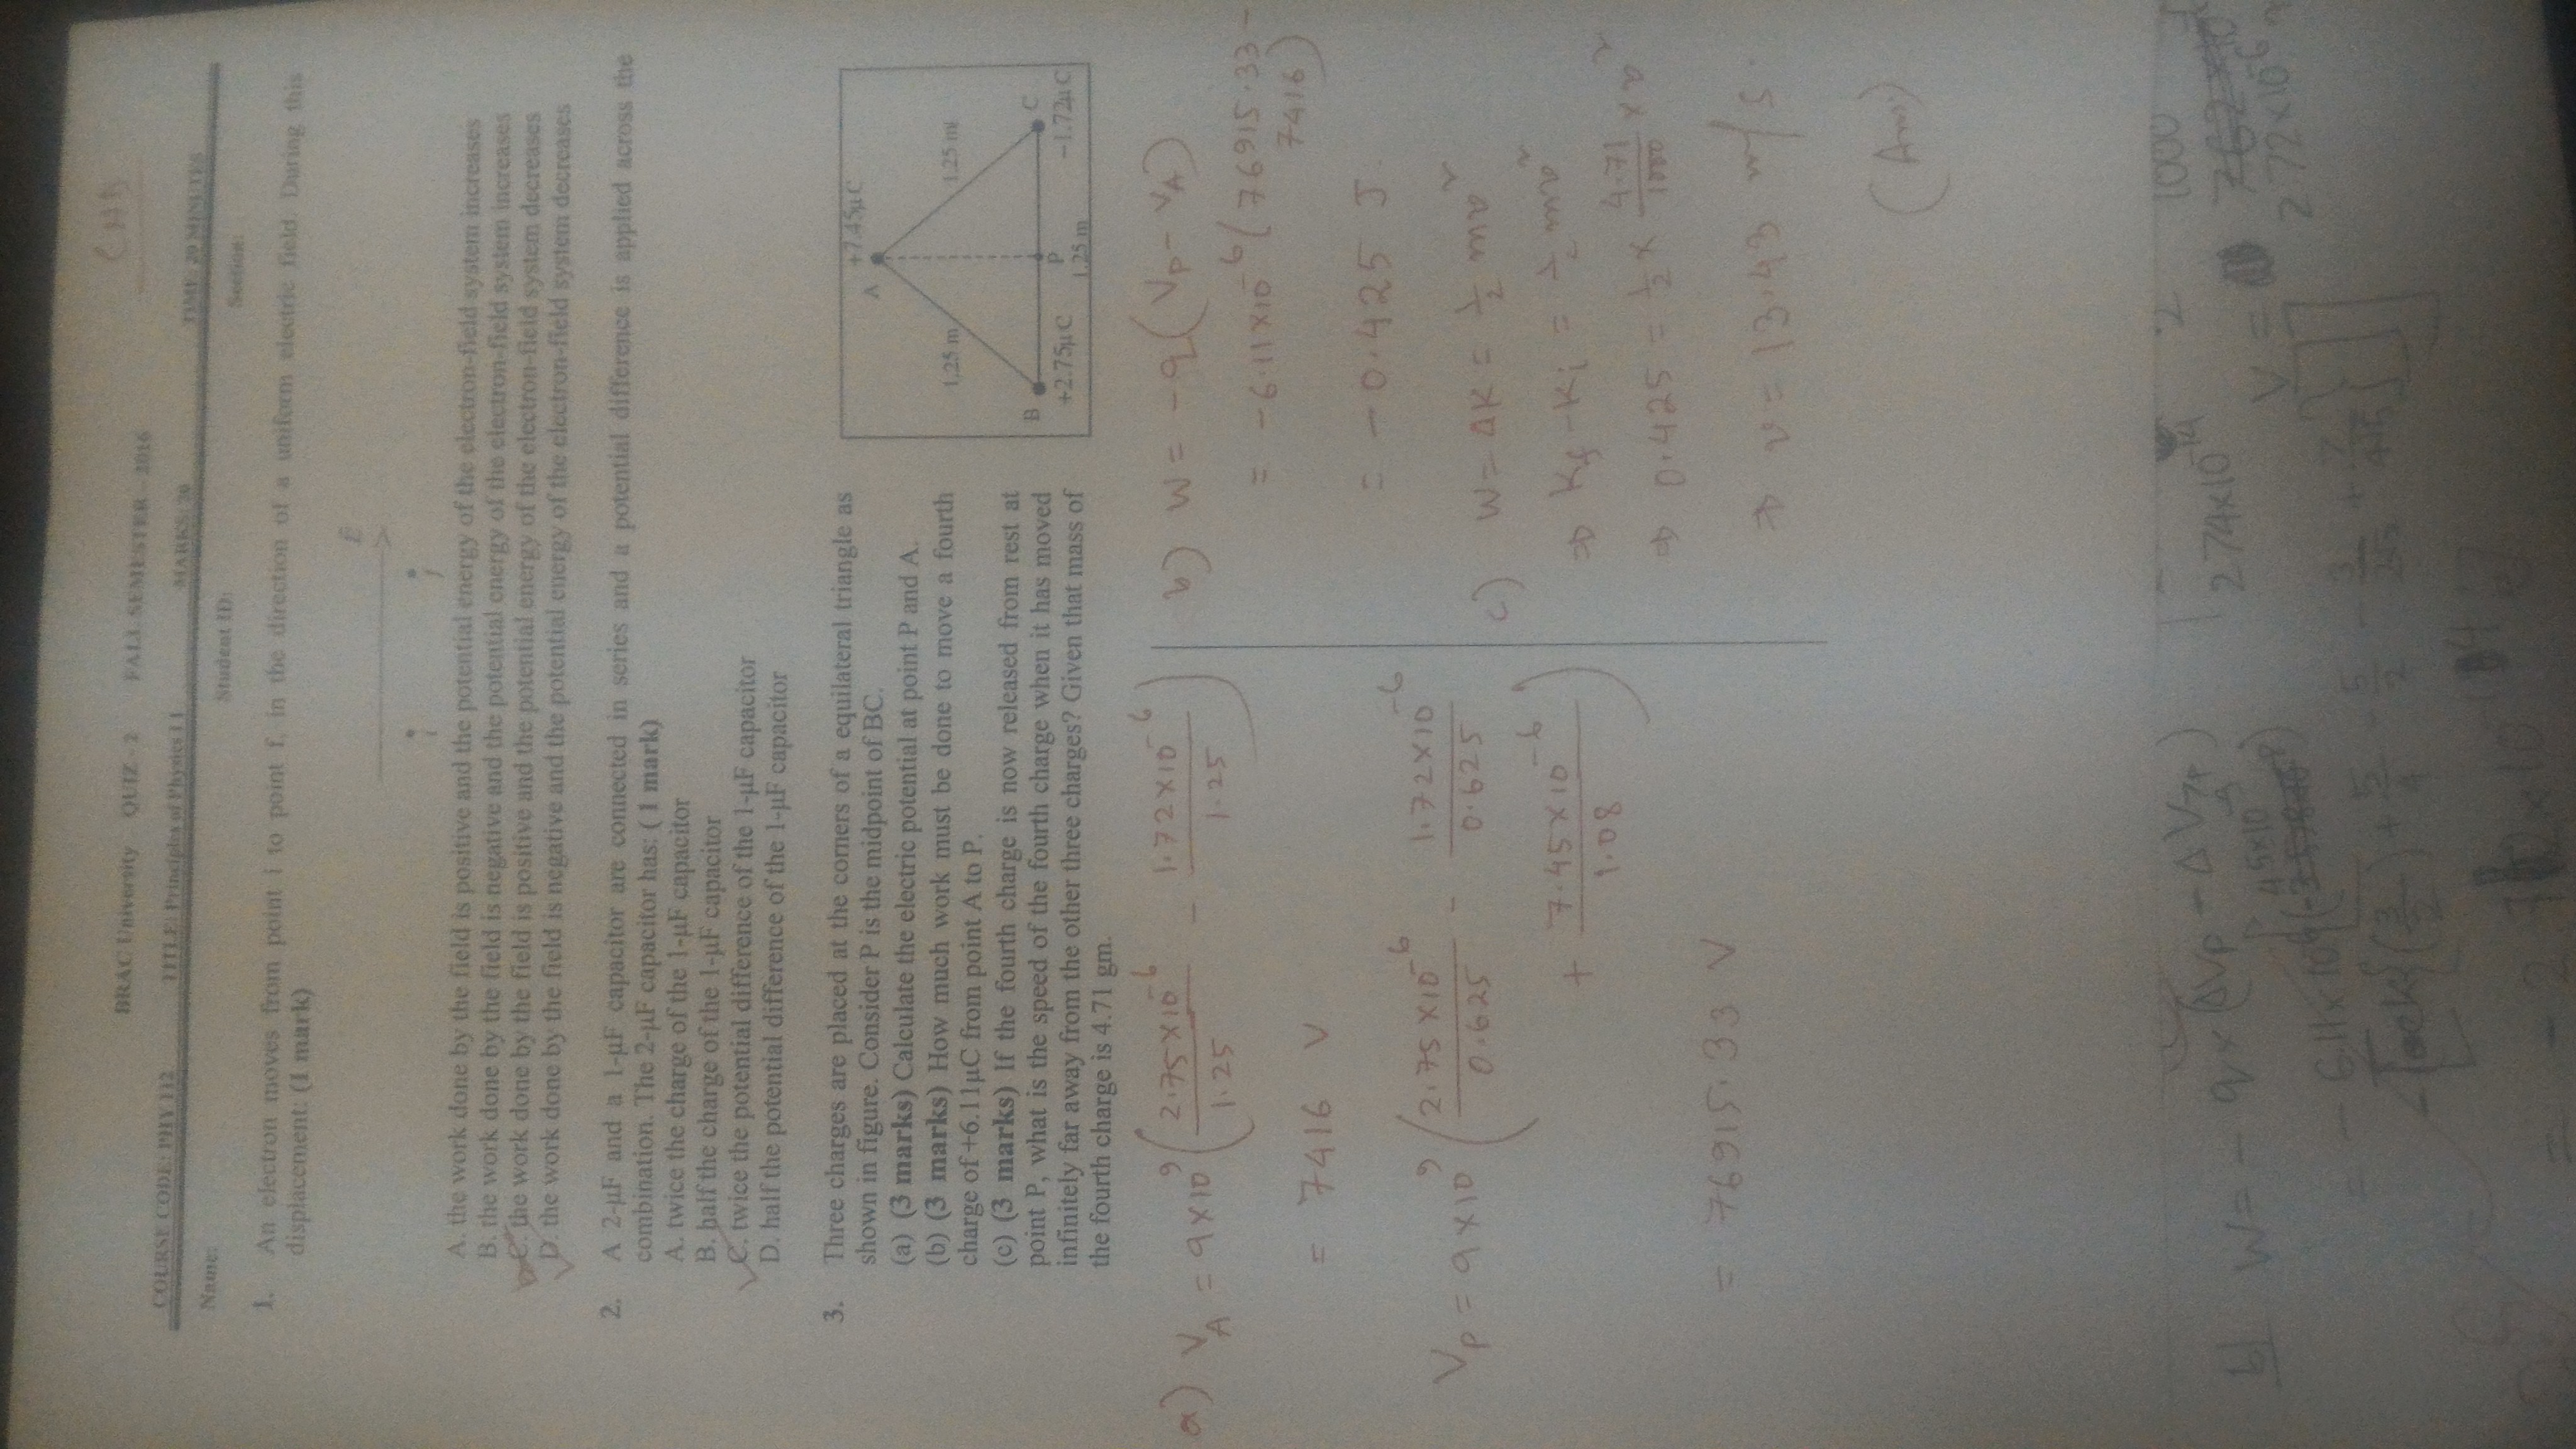 CHD
BRAC University QUIZ - 2 FALL SEMESTER - 2016
COURSE CODE: PHY 112 TITLE: Principles of Physics I I MARKS: 20 TIME: 20 MINUTES
Name: Student ID: Section:
1. An electron moves from point i to point f, in the direction of a uniform electric field. During this
displacement: (1 mark)
E
i
A. the work done by the field is positive and the potential energy of the electron-field system increases
B. the work done by the field is negative and the potential energy of the electron-field system increases
C. the work done by the field is positive and the potential energy of the electron-field system decreases
D. the work done by the field is negative and the potential energy of the electron-field system decreases
2. A 2-μF and a 1-μF capacitor are connected in series and a potential difference is applied across the
combination. The 2-μF capacitor has: ( 1 mark)
A. twice the charge of the 1-μF capacitor
B. half the charge of the 1-μF capacitor
C. twice the potential difference of the 1-μF capacitor
D. half the potential difference of the 1-μF capacitor
3. Three charges are placed at the corners of a equilateral triangle as
shown in figure. Consider P is the midpoint of BC.
(a) (3 marks) Calculate the electric potential at point P and A.
(b) (3 marks) How much work must be done to move a fourth
charge of +6.11μC from point A to P.
(c) (3 marks) If the fourth charge is now released from rest at
point P, what is the speed of the fourth charge when it has moved
infinitely far away from the other three charges? Given that mass of
the fourth charge is 4.71 gm.
+7.45μC
A
1.25 m 1.25 m
B C
+2.75μC P −1.72μC
1.25 m
a) V_A = 9×10^9 (2.75×10^-6 / 1.25 - 1.72×10^-6 / 1.25)
= 7416 V
V_P = 9×10^9 (2.75×10^-6 / 0.625 - 1.72×10^-6 / 0.625
+ 7.45×10^-6 / 1.08)
= 76915.33 V
b) W = -q (V_P - V_A)
= -6.11×10^-6 (76915.33 -
7416)
= -0.425 J
c) W = ΔK = 1/2 mv^2
⇒ K_f - K_i = 1/2 mv^2
⇒ 0.425 = 1/2 × 4.71/1000 × v^2
⇒ v = 13.43 m/s.
(Ans)
b) W = - q ×
274×10^-14
2 1000
V =
2.72×10^-6
- 6.11×10